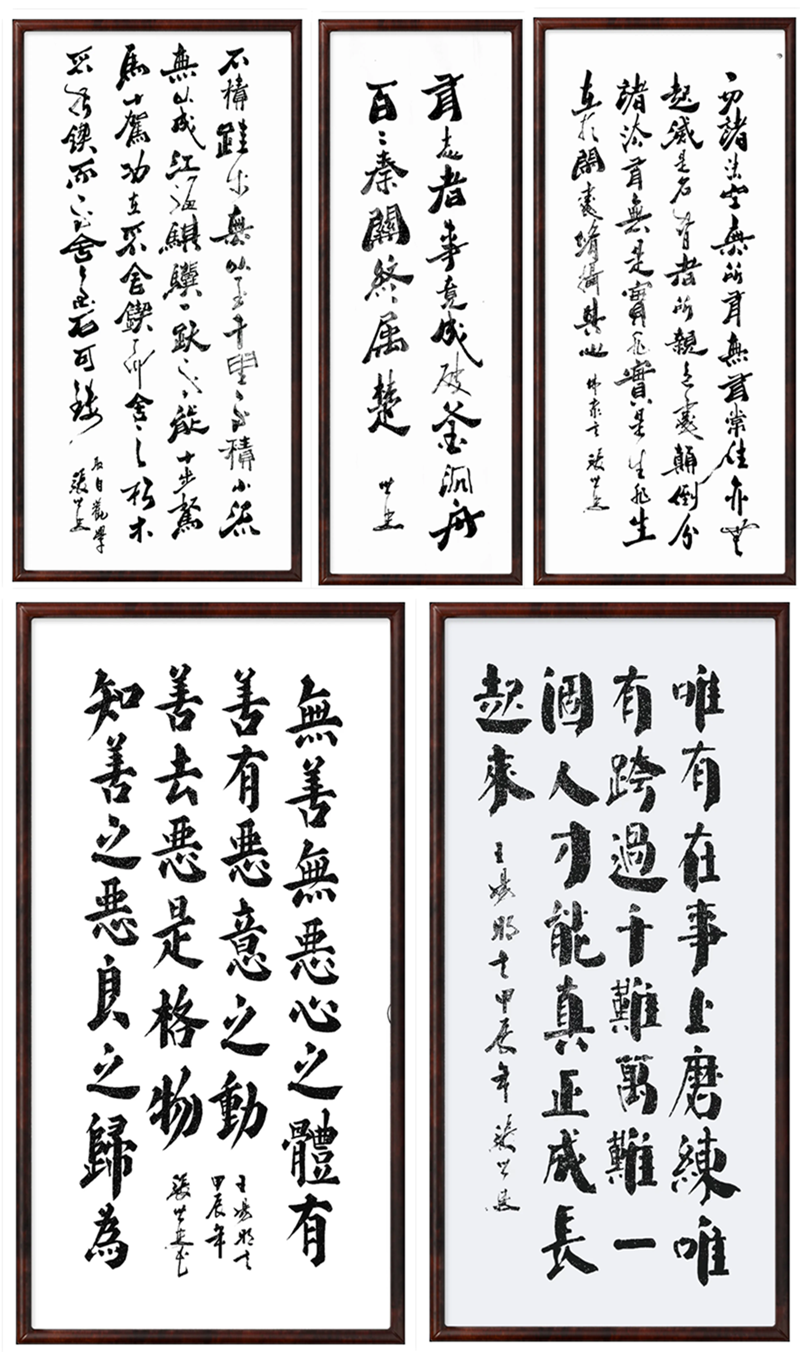 不積跬步無以至千里不積小流
無以成江海騏驥一跃不能十步駑
馬十駕功在不舍鍥而舍之朽木
不折鍥而不舍金石可鏤
勸學
張世
有志者事竟成破釜沉舟
百二秦關終属楚
世
一切諸法空無所有無有常住亦無
起滅是名智者所親近處顛倒分
諸法有無是實非實是生非生
在於閑處脩攝其心 佛家言 張世
無善無惡心之體有
善有惡意之動
善去惡是格物
知善之惡良之歸為
王陽明言
甲辰年
張世
唯有在事上磨練唯
有跨過千難萬難一
個人才能真正成長
起來 王陽明言甲辰年 張世